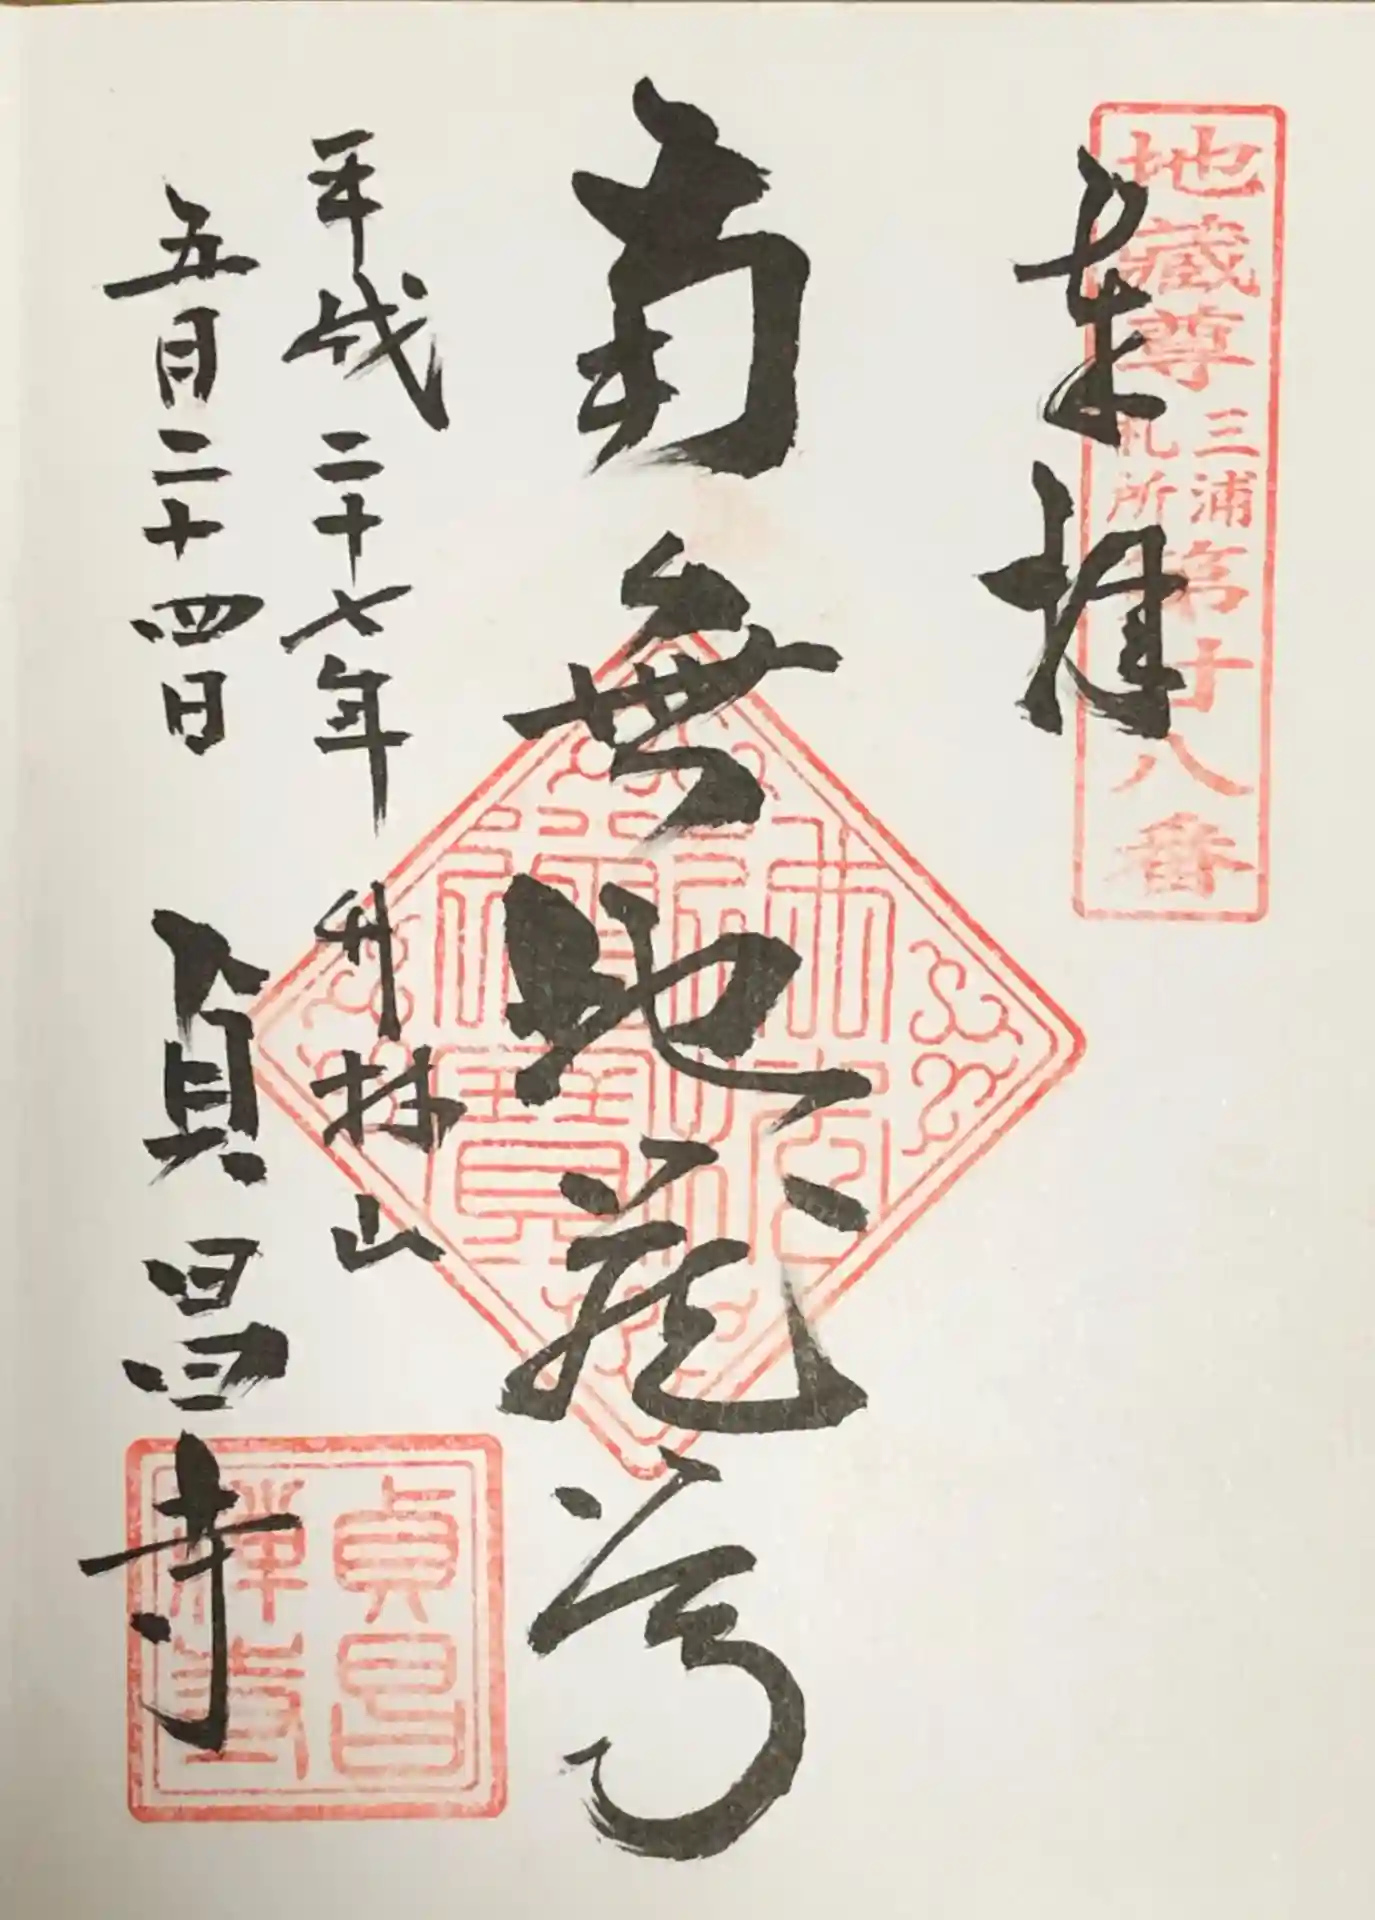 地蔵尊三浦札所第廿八番
奉拝
南無地蔵尊
佛法僧寶
平成二十七年 升林山
五月二十四日 貞昌寺
貞昌禅寺